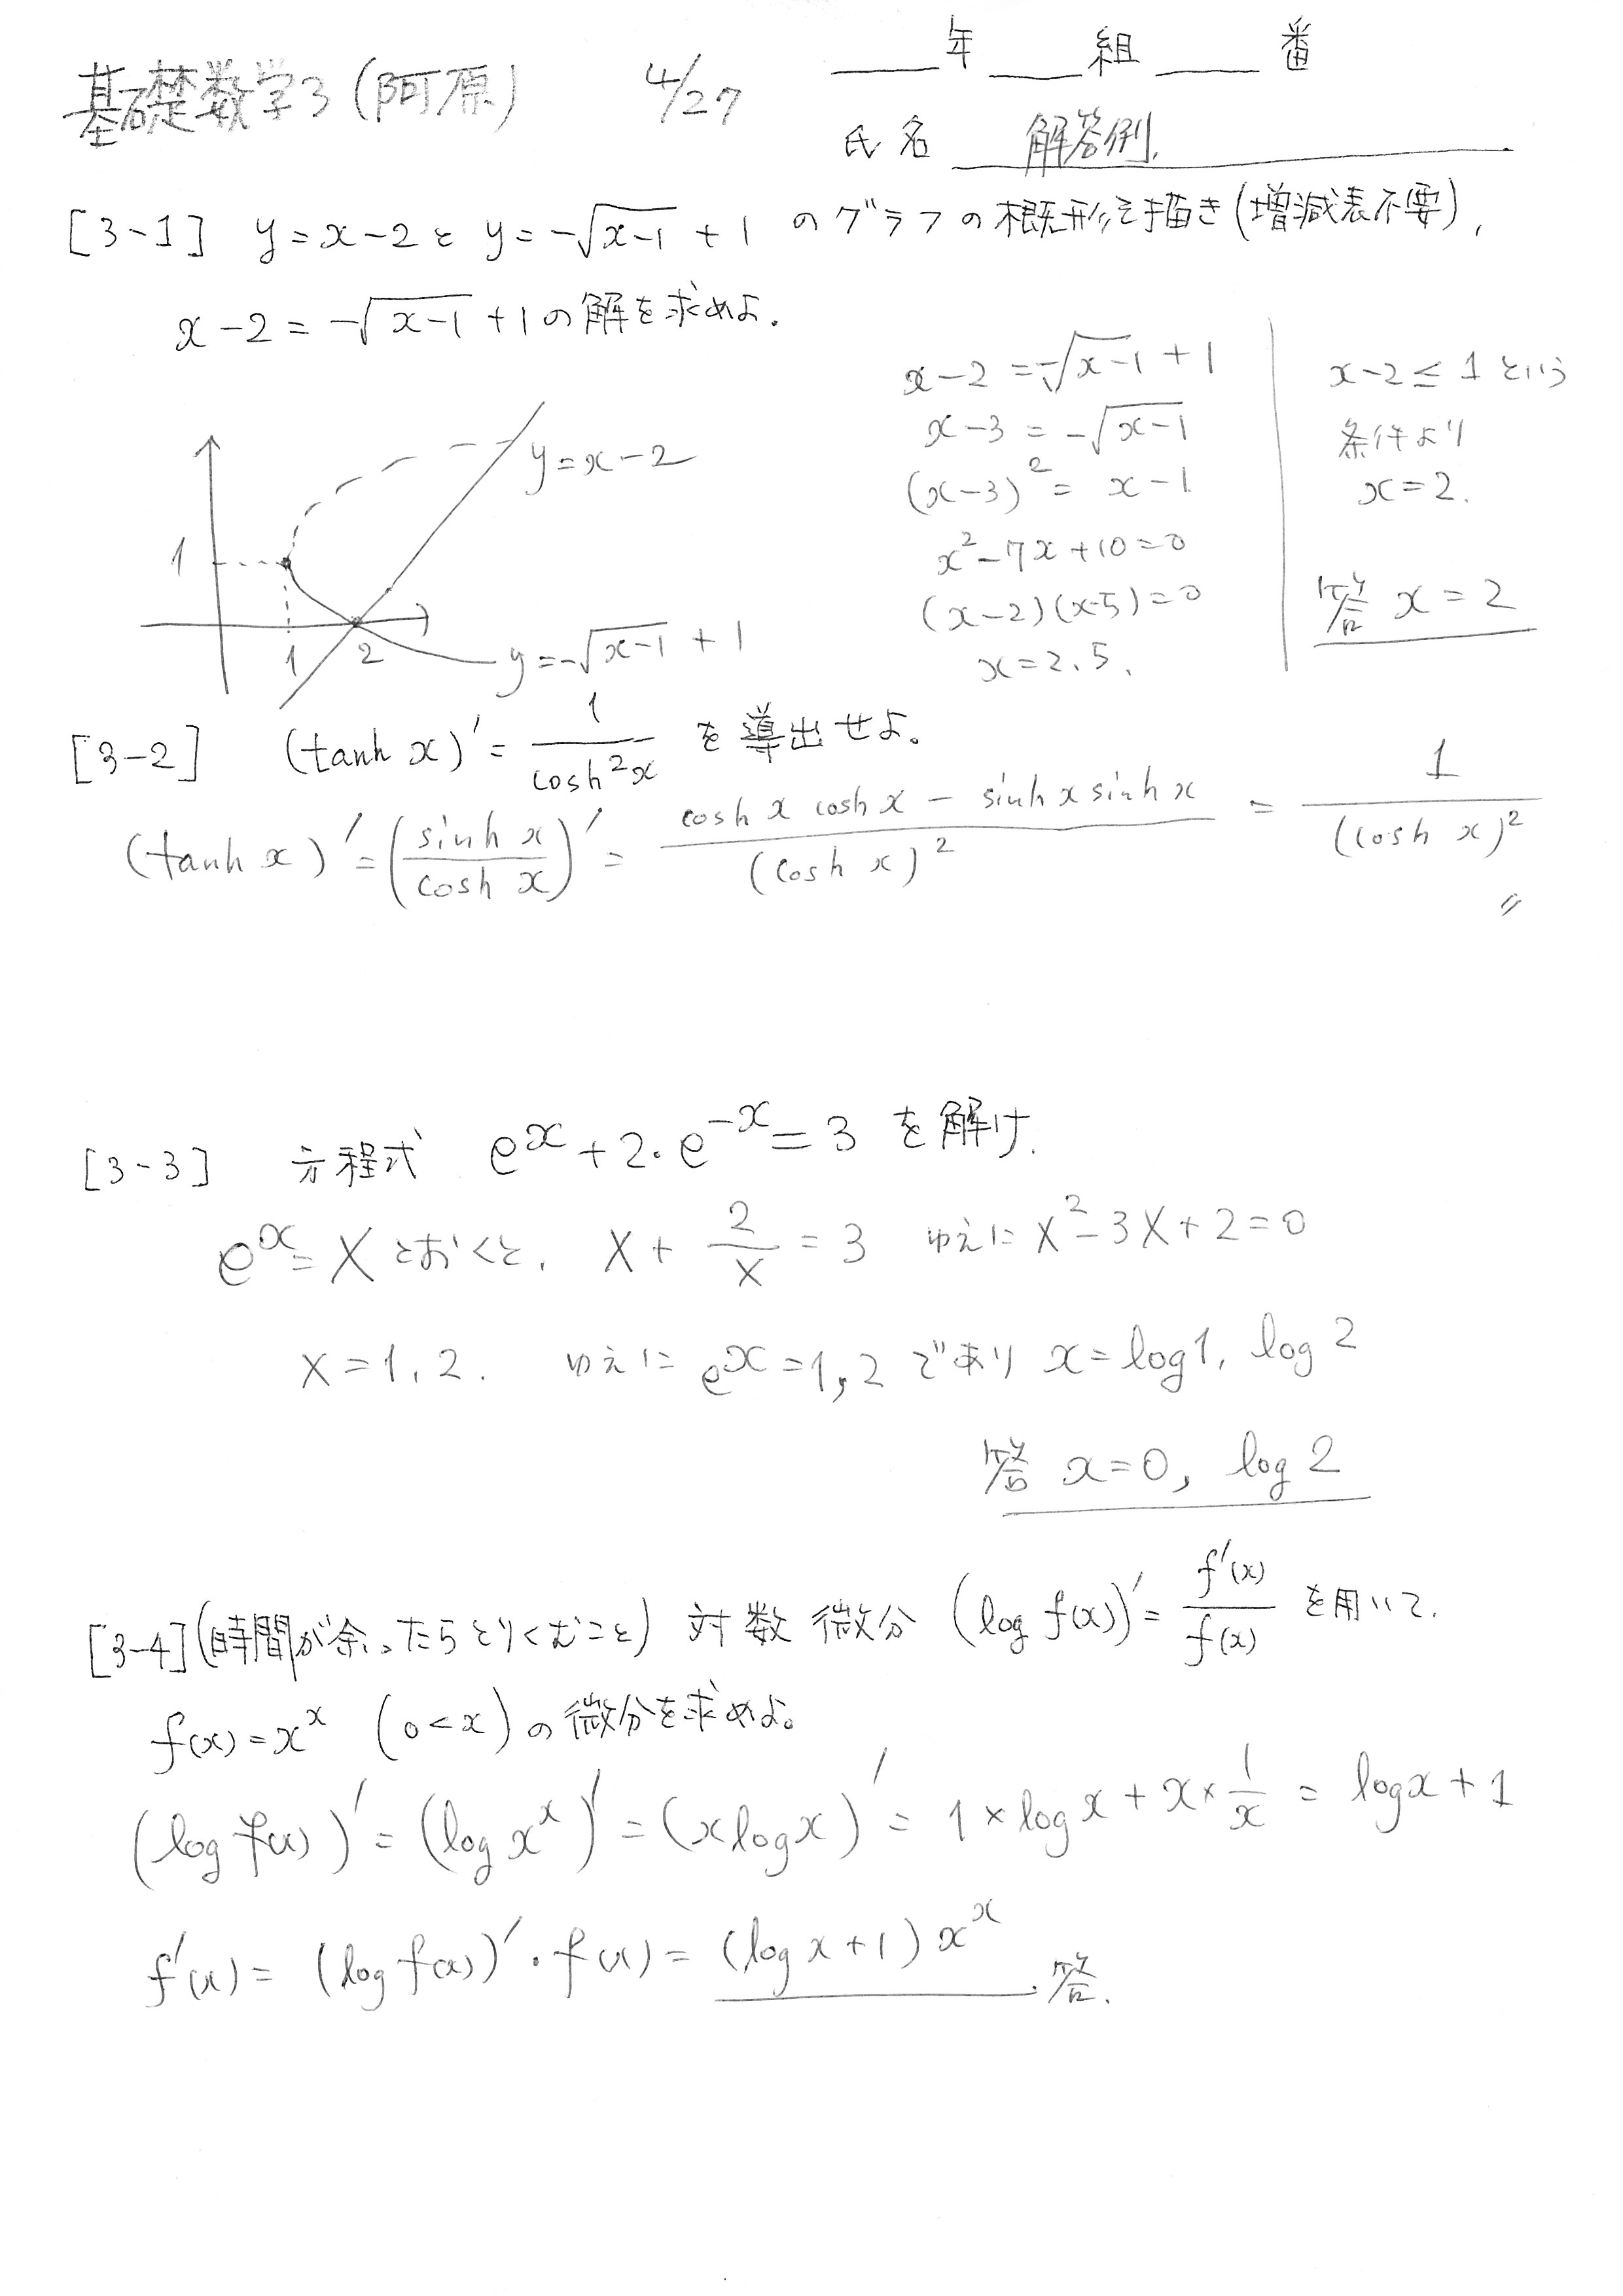 ___年___組___番
基礎数学3(阿原) 4/27
氏名 解答例.
[3-1] y=x-2と y=-√(x-1) + 1 のグラフの概形を描き(増減表不要),
x-2=-√(x-1)+1の解を求めよ.
y=x-2
1
1 2
y=-√(x-1) + 1
x-2=-√(x-1)+1
x-3=-√(x-1)
(x-3)²= x-1
x²-7x+10=0
(x-2)(x-5)=0
x=2.5.
x-2≤1という
条件より
x=2.
答 x=2
[3-2] (tanh x)′= 1/cosh²x を導出せよ。
(tanh x)′=(sinh x/cosh x)′= (cosh x cosh x - sinh x sinh x)/(cosh x)² = 1/(cosh x)²
〃
[3-3] 方程式 e^x+2・e^-x=3 を解け.
e^x=Xとおくと, X+2/X=3 ゆえに X²-3X+2=0
X=1,2. ゆえに e^x=1,2 であり x=log1, log2
答 x=0, log2
[3-4](時間が余ったらとりくむこと) 対数微分 (log f(x))′=f′(x)/f(x) を用いて.
f(x)=x^x (0<x)の微分を求めよ。
(log f(x))′=(log x^x)′=(x log x)′= 1×log x+x×1/x = log x+1
f′(x)= (log f(x))′・f(x)= (log x+1)x^x .答.